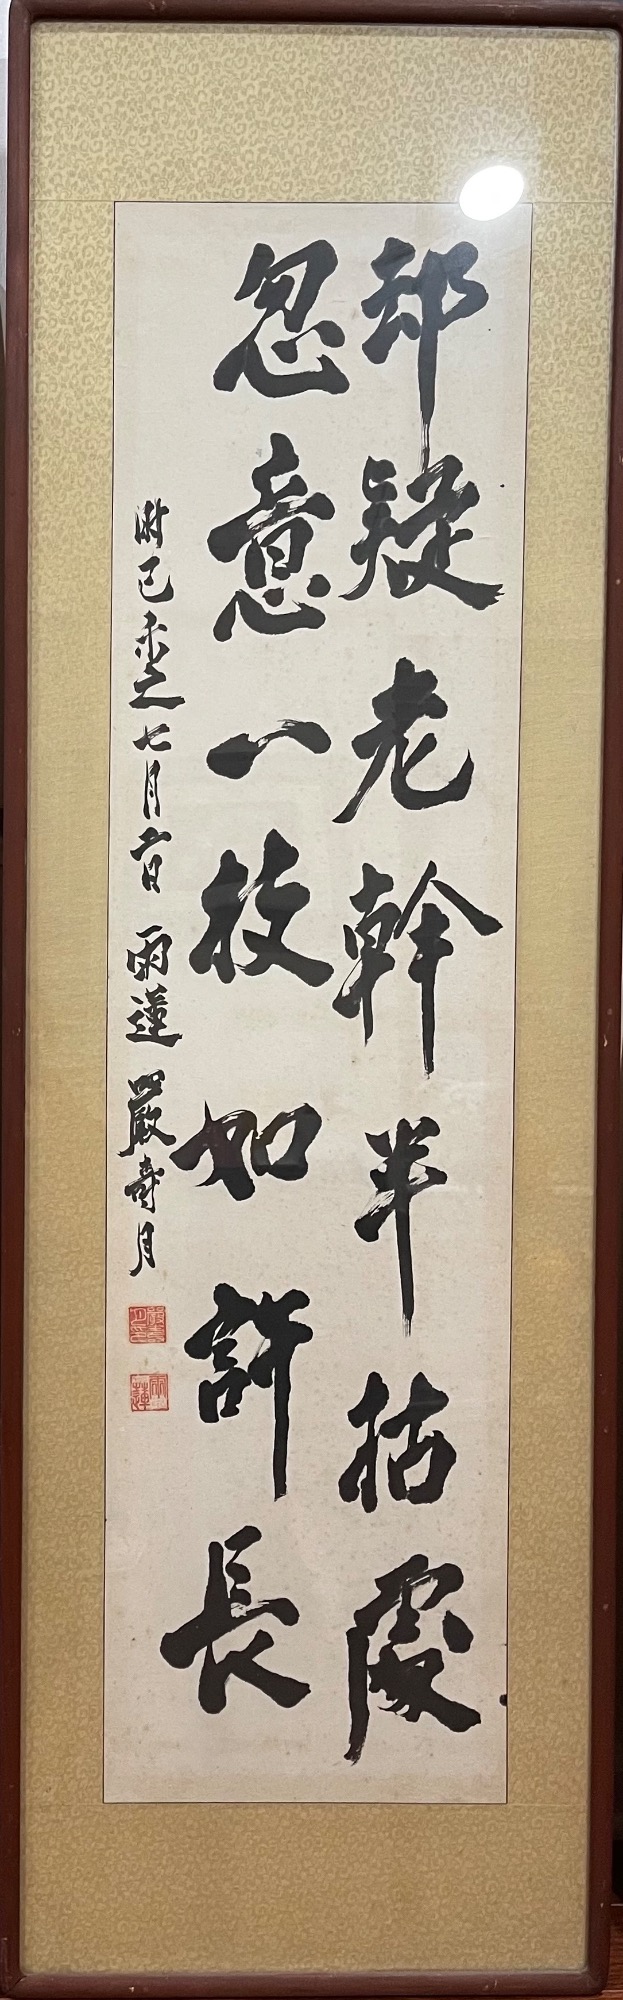 却疑老幹半枯處
忽意一枝如許長
時己未之七月六日 雨蓮 嚴壽月